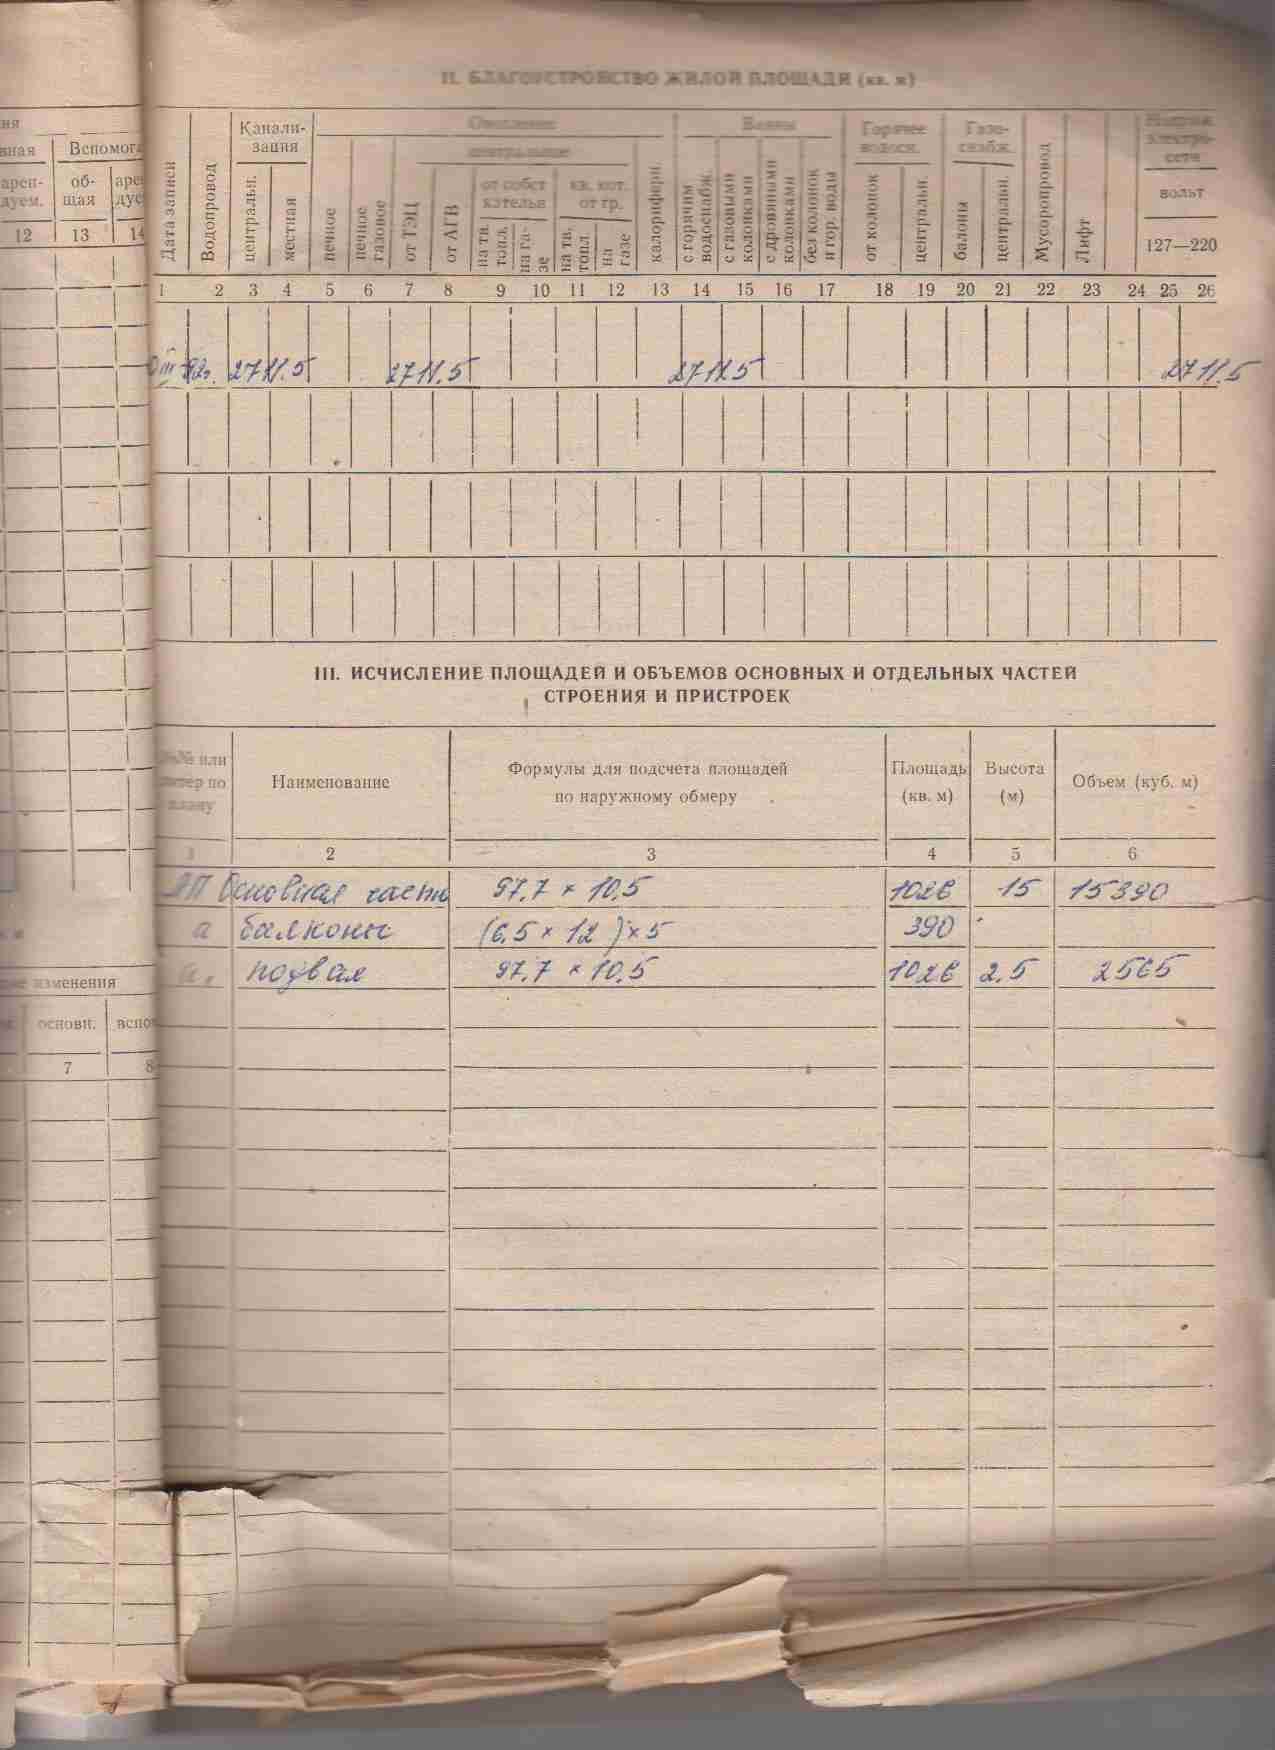 II. БЛАГОУСТРОЙСТВО ЖИЛОЙ ПЛОЩАДИ (кв. м)
Дата записи
Водопровод
Канали-
зация
центральн.
местная
Отопление
печное
печное
газовое
центральное
от ТЭЦ
от АГВ
от собст
котельн
на тв.
топл.
на га-
зе
кв. кот.
от гр.
на тв.
топл.
на
газе
калорифери.
Ванны
с горячим
водоснабж.
с газовыми
колонками
с дровяными
колонками
без колонок
и гор. воды
Горячее
водосн.
от колонок
центральн.
Газо-
снабж.
баллоны
центральн.
Мусоропровод
Лифт
Напряж.
электро-
сети
вольт
127—220
1 2 3 4 5 6 7 8 9 10 11 12 13 14 15 16 17 18 19 20 21 22 23 24 25 26
III 92г. 2711.5 2711.5 2711.5 2711.5
III. ИСЧИСЛЕНИЕ ПЛОЩАДЕЙ И ОБЪЕМОВ ОСНОВНЫХ И ОТДЕЛЬНЫХ ЧАСТЕЙ
СТРОЕНИЯ И ПРИСТРОЕК
№№ или
литер по
плану
Наименование
Формулы для подсчета площадей
по наружному обмеру
Площадь
(кв. м)
Высота
(м)
Объем (куб. м)
1 2 3 4 5 6
Основная часть 97.7 × 10.5 1026 15 15390
а балконы (6.5 × 12) × 5 390
а, подвал 97.7 × 10.5 1026 2.5 2565
ния
вная Вспомога
арен-
дуем.
об-
щая
аре
дус
12 13 14
изменения
основн. вспо
7 8